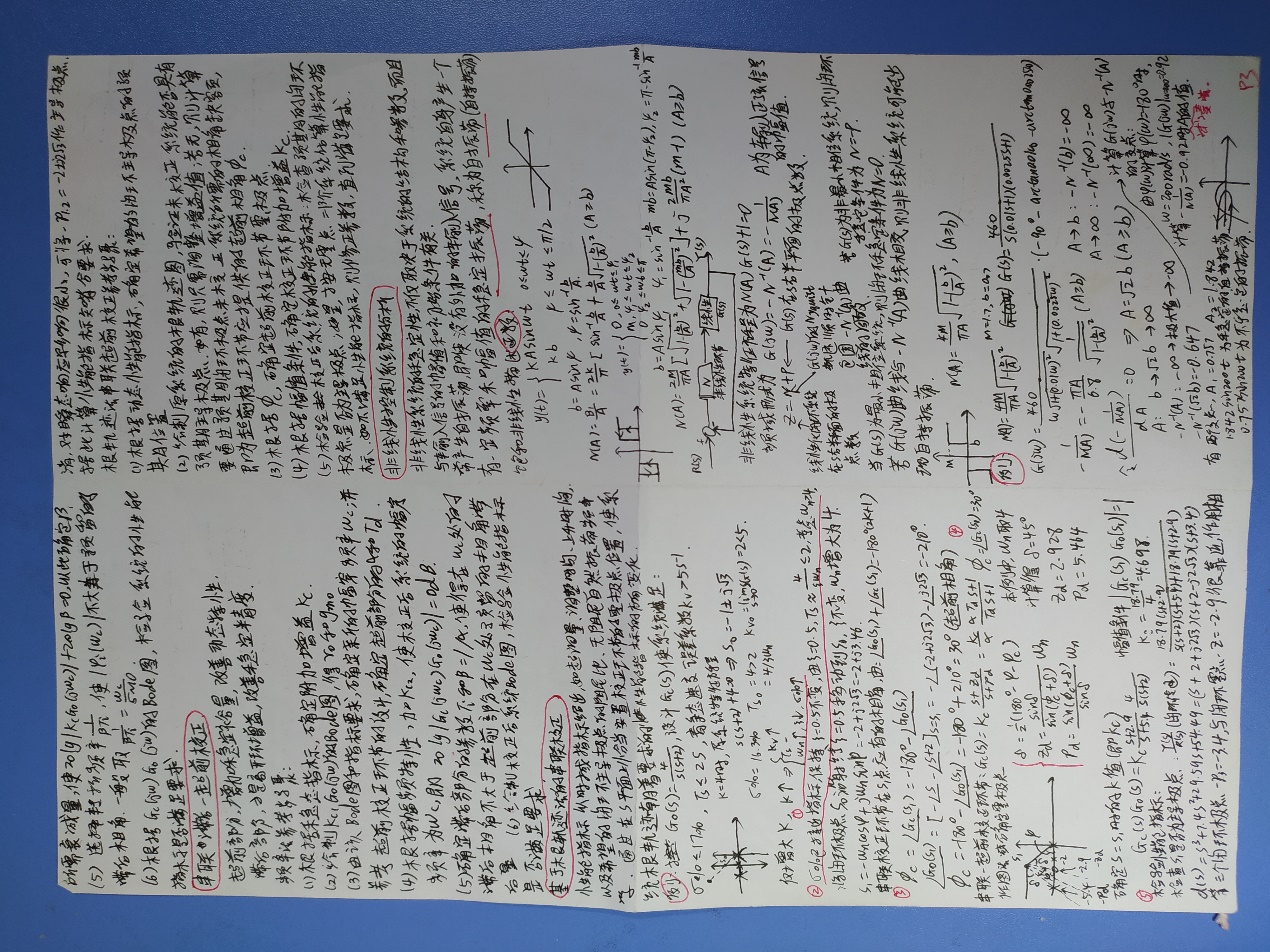 所需衰减量,使20lg|KcG0(jωc)|+20lgβ=0,以此确定β.
(5) 选择转折频率 1/βTi, 使|φi(ωc)|不大于预留的
滞后相角. 一般取 1/βTi = ωc/5~10.
(6)根据Gc(jω)G0(jω)的Bode图,检验系统的性能
指标是否满足要求.
串联滞后-超前校正
超前部分,增加稳定裕量,改善动态特性.
滞后部分,提高开环增益,改善稳定精度.
频率法参考步骤:
(1)根据稳态指标,确定附加增益Kc
(2)绘制Kc1G0(jω)的Bode图,得γ0和gm0
(3)由该Bode图和指标要求,确定新的幅穿频率ωc;并
参考超前校正环节的设计,确定超前部分的α和Td.
(4)根据幅频特性,加Kc2,使校正后系统的幅穿
频率为ωc,即 20lg|Gc(jωc)G0(jωc)|=0dB.
(5)确定滞后部分的参数Ti和β=1/α,使得在ωc处的
滞后相角不大于超前部分在ωc处预留的相角滞
后量 (6)绘制校正后系统Bode图,检验性能指标
是否满足要求.
基于根轨迹法的串联校正
性能指标以时域指标给出,如超调量、调整时间、上升时间,
以及希望的闭环主导极点的阻尼比、无阻尼自然振荡频率
等. 通过在s平面上恰当安置校正环节的零极点位置,使系
统根轨迹朝着要求的性能指标的方向变化.
例: G0(s)=4/s(s+2),设计Gc(s)使系统满足:
σ%≤17%, Ts≤2s,静态速度误差系数Kv>5s-1
K=4时,原系统特征方程
s(s+2)+4=0 ⇒ s0=-1±j√3
σ%=16.3% Ts0=4>2 Kv0=lim s→0 sG(s)=2<5.
=4/ζωn
仅增大K, K↑⇒ {Kv↑ Ts- ωn↑,ζ↓,σ%↑
①
② σ%已接近指标,保持ζ=0.5不变,由ζ=0.5,Ts≈4/ζωn≤2,考虑ωn≥4
将闭环极点s0沿射线ζ=0.5移动到s1, ζ不变,ωn增大为4.
s1=-ωncosφ+jωnsinφ=-2+j2√3=-2+j3.46.
串联校正环节在s1点应有的相角,由:∠G0(s1)+∠Gc(s1)=-180°(2k+1)
③ φc=∠Gc(s1)=-180°-∠G0(s1)
∠G0(s1)=[-∠s-∠s+2]s=s1=-∠(-2+j2√3)-∠j2√3=-210°
φc=-180°-∠G0(s1)=-180°+210°=30°(超前相角)
④
串联-超前校正环节:Gc(s)=Kc (s+Zd)/(s+Pd)=Kc/α (αTds+1)/(Tds+1) φc=∠Gc(s1)=30°
作图法确定零极点
δ=½(180°-φ-φc) 本例中,ωn取4
Zd=sinδ/sin(φc+δ) ωn 计算得 δ=45°
Pd=sin(φc+δ)/sinδ ωn Zd=2.928
Pd=5.464
-5.4 -2.9 -2
-Pd -Zd
确定s=s1时的K值(即Kc) 幅值条件 |Gc(s1)G0(s1)|=1
⑤ Gc(s)G0(s)=Kc (s+2.9)/(s+5.4) 4/s(s+2) Kc=18.79/4=4.698.
检验性能指标:
检查s1是否为主导极点. Y(s)/R(s)(闭环传函)=18.79(s+2.9)/s(s+2)(s+5.4)+18.79(s+2.9)
d(s)=s³+7.4s²+29.59s+54.49=(s+2+j2√3)(s+2-j2√3)(s+3.4)
第三个闭环极点-P3=-3.4,与闭环零点-Z=-2.9很靠近,作用相
消,对瞬态响应影响很小,可将-P1,2=-2±j2√3作主导极点,
据此计算性能指标知符合要求.
根轨迹法串联超前校正参考步骤:
(1)根据动态性能指标,确定希望的闭环主导极点的预
期位置
(2)绘制原系统的根轨迹图,验证未校正系统能否具有
预期主导极点.如有,则只需调整增益值;若无,则计算
要通过预期闭环极点未校正系统所需的相角缺额,
即为超前校正环节应提供的超前相角φc.
(3)根据φc,确定超前校正环节零极点
(4)根据幅值条件,确定校正环节附加增益Kc.
(5)检验校正后系统的性能指标:检查预期的闭环
极点是否为主导极点;如是,按无零点二阶系统估算性能指
标.如不满足性能指标,则修正参数,直到满足要求.
非线性控制系统的分析
非线性系统的稳定性不仅取决于系统的结构和参数,而且
与输入信号的幅值和初始条件有关.
常产生自振荡,即使没有外加的输入信号,系统自身产生一个
有一定频率和幅值的稳定振荡,称为自振荡(自持振荡)
饱和非线性描述函数
y(t)={KAsinωt 0≤ωt≤ψ
Kb ψ≤ωt≤π/2
b=Asinψ,ψ=sin-1 b/A
N(A)=B1/A=2k/π[sin-1 b/A+b/A√1-(b/A)²] (A≥b)
y(t)={0, 0≤ωt≤ψ1
M, ψ1≤ωt≤ψ2
0 ψ2≤ωt≤π
b=Asinψ1 ψ1=sin-1 b/A mb=Asin(π-ψ2),ψ2=π-sin-1 mb/A
N(A)=2M/πA[√1-(b/A)²+√1-(mb/A)²]+j 2Mb/πA²(m-1) (A≥b)
R(s) N 非线性环节 线性 G(s) Y(s)
非线性系统特征方程为N(A)G(s)+1=0
频域形式为 G(jω)=-N-1(A)=-1/N(A) A为输入正弦信号
的幅值.
Z=N+P ← G(s)在s右半平面的极点数
线性化闭环系统
在s右半面的极
点数
G(jω)的Nyquist
轨迹顺时针
包围-N-1(A)曲
线的圈数
若G(s)为非最小相位系统,则闭环
稳定条件为N=-P.
当G(s)为最小相位系统,则闭环稳定条件为N=0.
若G(jω)曲线与-N-1(A)曲线相交,则非线性系统可能出
现自持振荡.
M b N(A)=4M/πA√1-(b/A)²,(A≥b)
例: N(A)=4M/πA√1-(b/A)² M=1.7,b=0.7 G(s)=460/s(0.01s+1)(0.0025s+1)
G(jω)=460/ω√1+(0.01ω)²√1+(0.0025ω)² ·(-90°-arctan0.01ω-arctan0.0025ω)
-1/N(A)=-πA/6.8 1/√1-(b/A)² (A≥b) A→b:-N-1(b)=-∞
A→∞:-N-1(∞)=-∞
令 d(-1/N(A))/dA=0 ⇒ A=√2b (A≥b)
A: b→√2b→∞
-N-1(A):-∞→极大值→-∞
-N-1(√2b)=-0.647
计算G(jω)与-N-1(A)
的交点:
由φ(ω)计算φ(ω)=-180°时,
ω=200rad/s,|G(jω)|ω=200=0.92
计算-1/N(A)=-0.92时A的值.
有两交点,A1=0.757 A2=1.842
1.842sin200t为稳定的自持振荡
0.757sin200t为不稳定的振荡.
P3